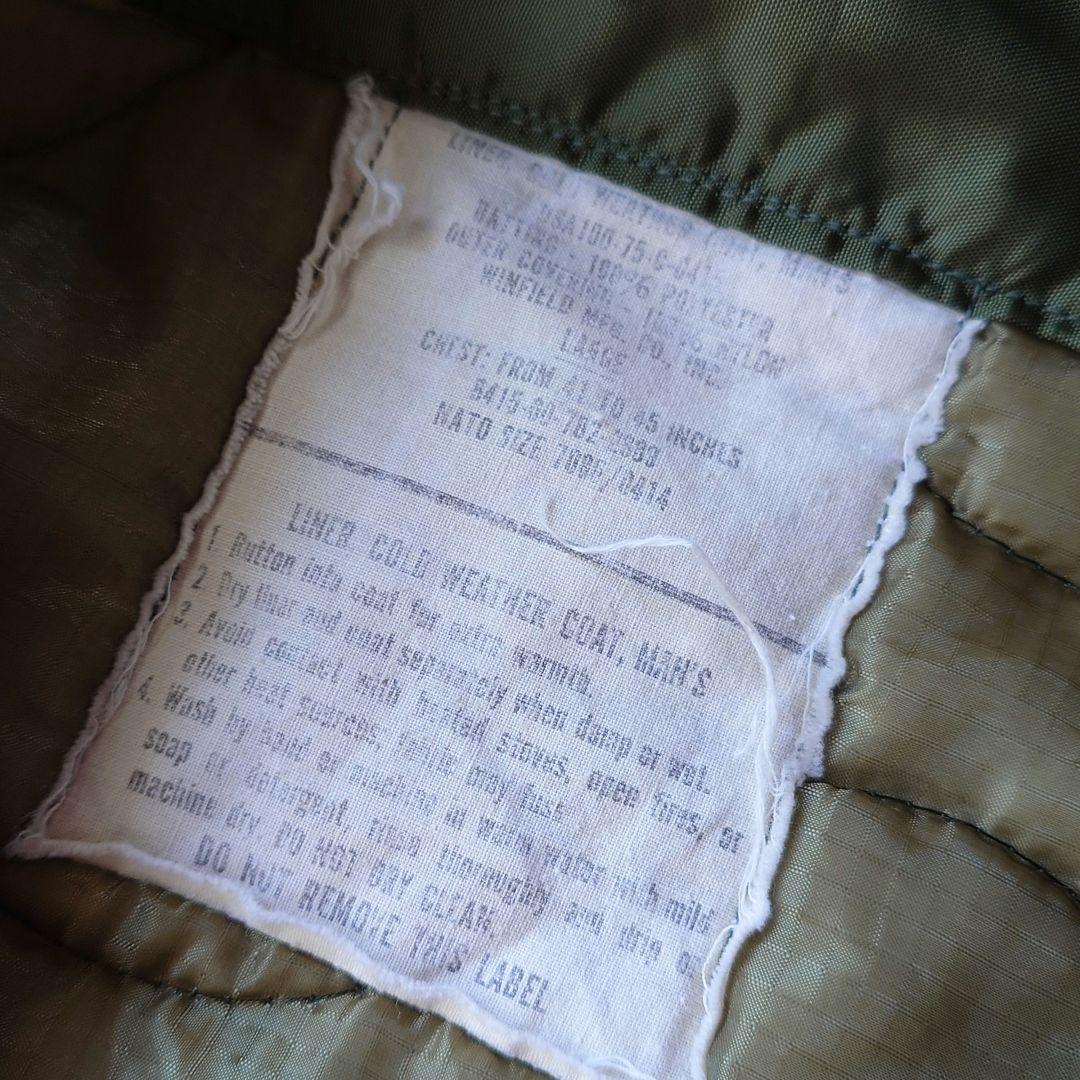 LINER, COLD WEATHER COAT, MAN'S
DSA100-75-C-04
BATTING - 100% POLYESTER
OUTER COVERING 100% NYLON
WINFIELD MFG. CO., INC.
LARGE
CHEST: FROM 41 TO 45 INCHES
8415-00-782-2889
NATO SIZE 7085/0414
LINER COLD WEATHER COAT, MAN'S
1. Button into coat for extra warmth.
2. Dry liner and coat separately when damp or wet.
3. Avoid contact with heated stoves, open fires, or
other heat sources, fabric may fuse
4. Wash by hand or machine in warm water with mild
soap or detergent, rinse thoroughly and drip or
machine dry. DO NOT DRY CLEAN
DO NOT REMOVE THIS LABEL